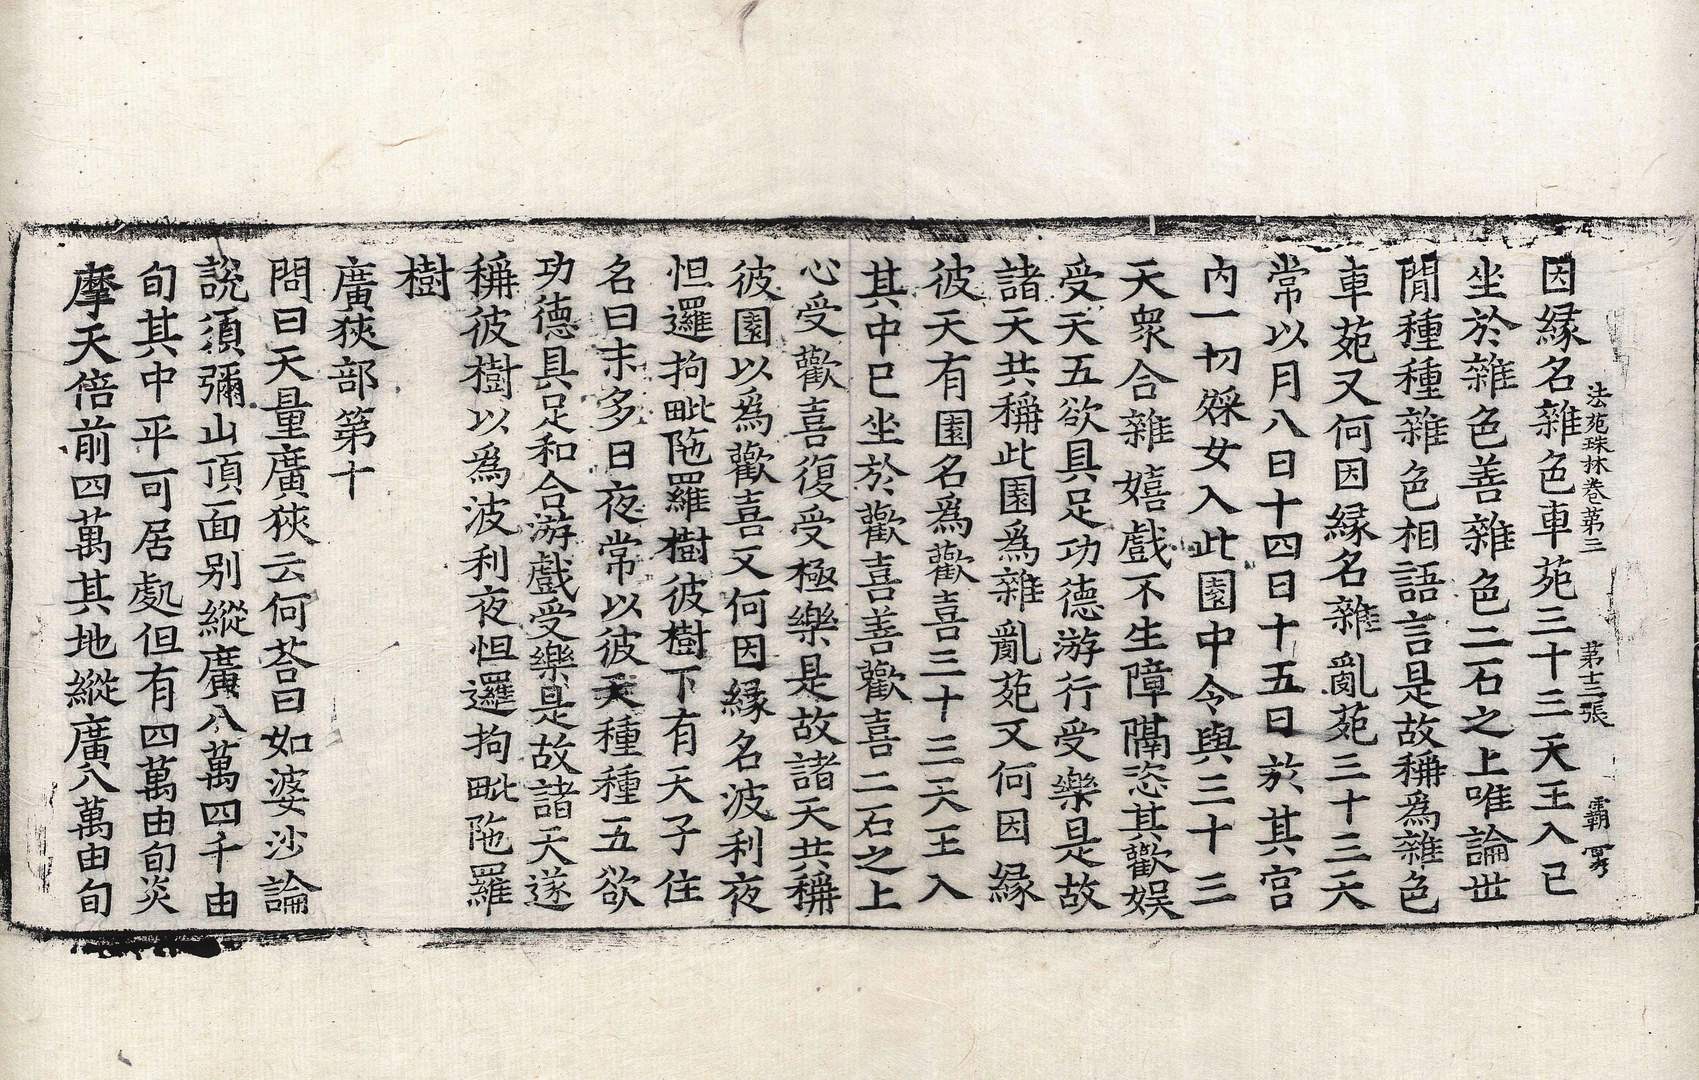 法苑珠林卷第三　第十三張　霸
因緣名雜色車苑三十三天王入已
坐於雜色善雜色二石之上唯論世
閒種種雜色相語言是故稱爲雜色
車苑又何因緣名雜亂苑三十三天
常以月八日十四日十五日於其宮
內一切婇女入此園中令與三十三
天衆合雜嬉戲不生障隔恣其歡娛
受天五欲具足功德游行受樂是故
諸天共稱此園爲雜亂苑又何因緣
彼天有園名爲歡喜三十三天王入
其中已坐於歡喜善歡喜二石之上
心受歡喜復受極樂是故諸天共稱
彼園以爲歡喜又何因緣名波利夜
怛邏拘毗陁羅樹彼樹下有天子住
名曰末多日夜常以彼天種種五欲
功德具足和合游戲受樂是故諸天遂
稱彼樹以爲波利夜怛邏拘毗陁羅
樹
廣狹部第十
問曰天量廣狹云何荅曰如婆沙論
說須彌山頂面别縱廣八萬四千由
旬其中平可居處但有四萬由旬炎
摩天倍前四萬其地縱廣八萬由旬